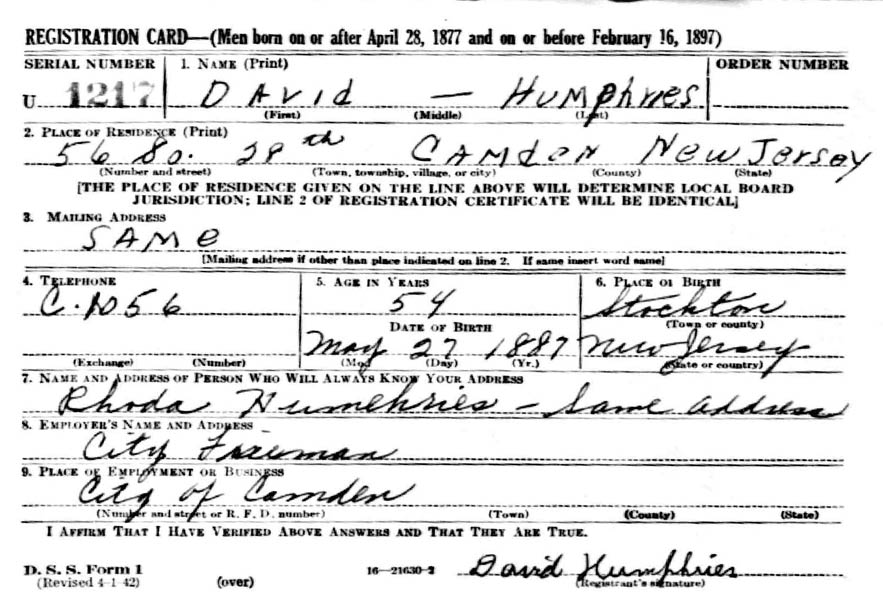 REGISTRATION CARD—(Men born on or after April 28, 1877 and on or before February 16, 1897)
SERIAL NUMBER 1. NAME (Print) ORDER NUMBER
U 1217 DAVID — HUMPHRIES
(First) (Middle) (Last)
2. PLACE OF RESIDENCE (Print)
56 So. 28th CAMDEN NEW JERSEY
(Number and street) (Town, township, village, or city) (County) (State)
[THE PLACE OF RESIDENCE GIVEN ON THE LINE ABOVE WILL DETERMINE LOCAL BOARD
JURISDICTION; LINE 2 OF REGISTRATION CERTIFICATE WILL BE IDENTICAL]
3. MAILING ADDRESS
SAME
[Mailing address if other than place indicated on line 2. If same insert word same]
4. TELEPHONE 5. AGE IN YEARS 6. PLACE OF BIRTH
54 Stockton
DATE OF BIRTH (Town or county)
May 27 1887 New Jersey
(Exchange) (Number) (Mo.) (Day) (Yr.) (State or country)
7. NAME AND ADDRESS OF PERSON WHO WILL ALWAYS KNOW YOUR ADDRESS
Rhoda Humphries - Same address
8. EMPLOYER'S NAME AND ADDRESS
City Fireman
9. PLACE OF EMPLOYMENT OR BUSINESS
City of Camden
(Number and street or R. F. D. number) (Town) (County) (State)
I AFFIRM THAT I HAVE VERIFIED ABOVE ANSWERS AND THAT THEY ARE TRUE.
D. S. S. Form 1 16—21630-2 David Humphries
(Revised 4-1-42) (over) (Registrant's signature)